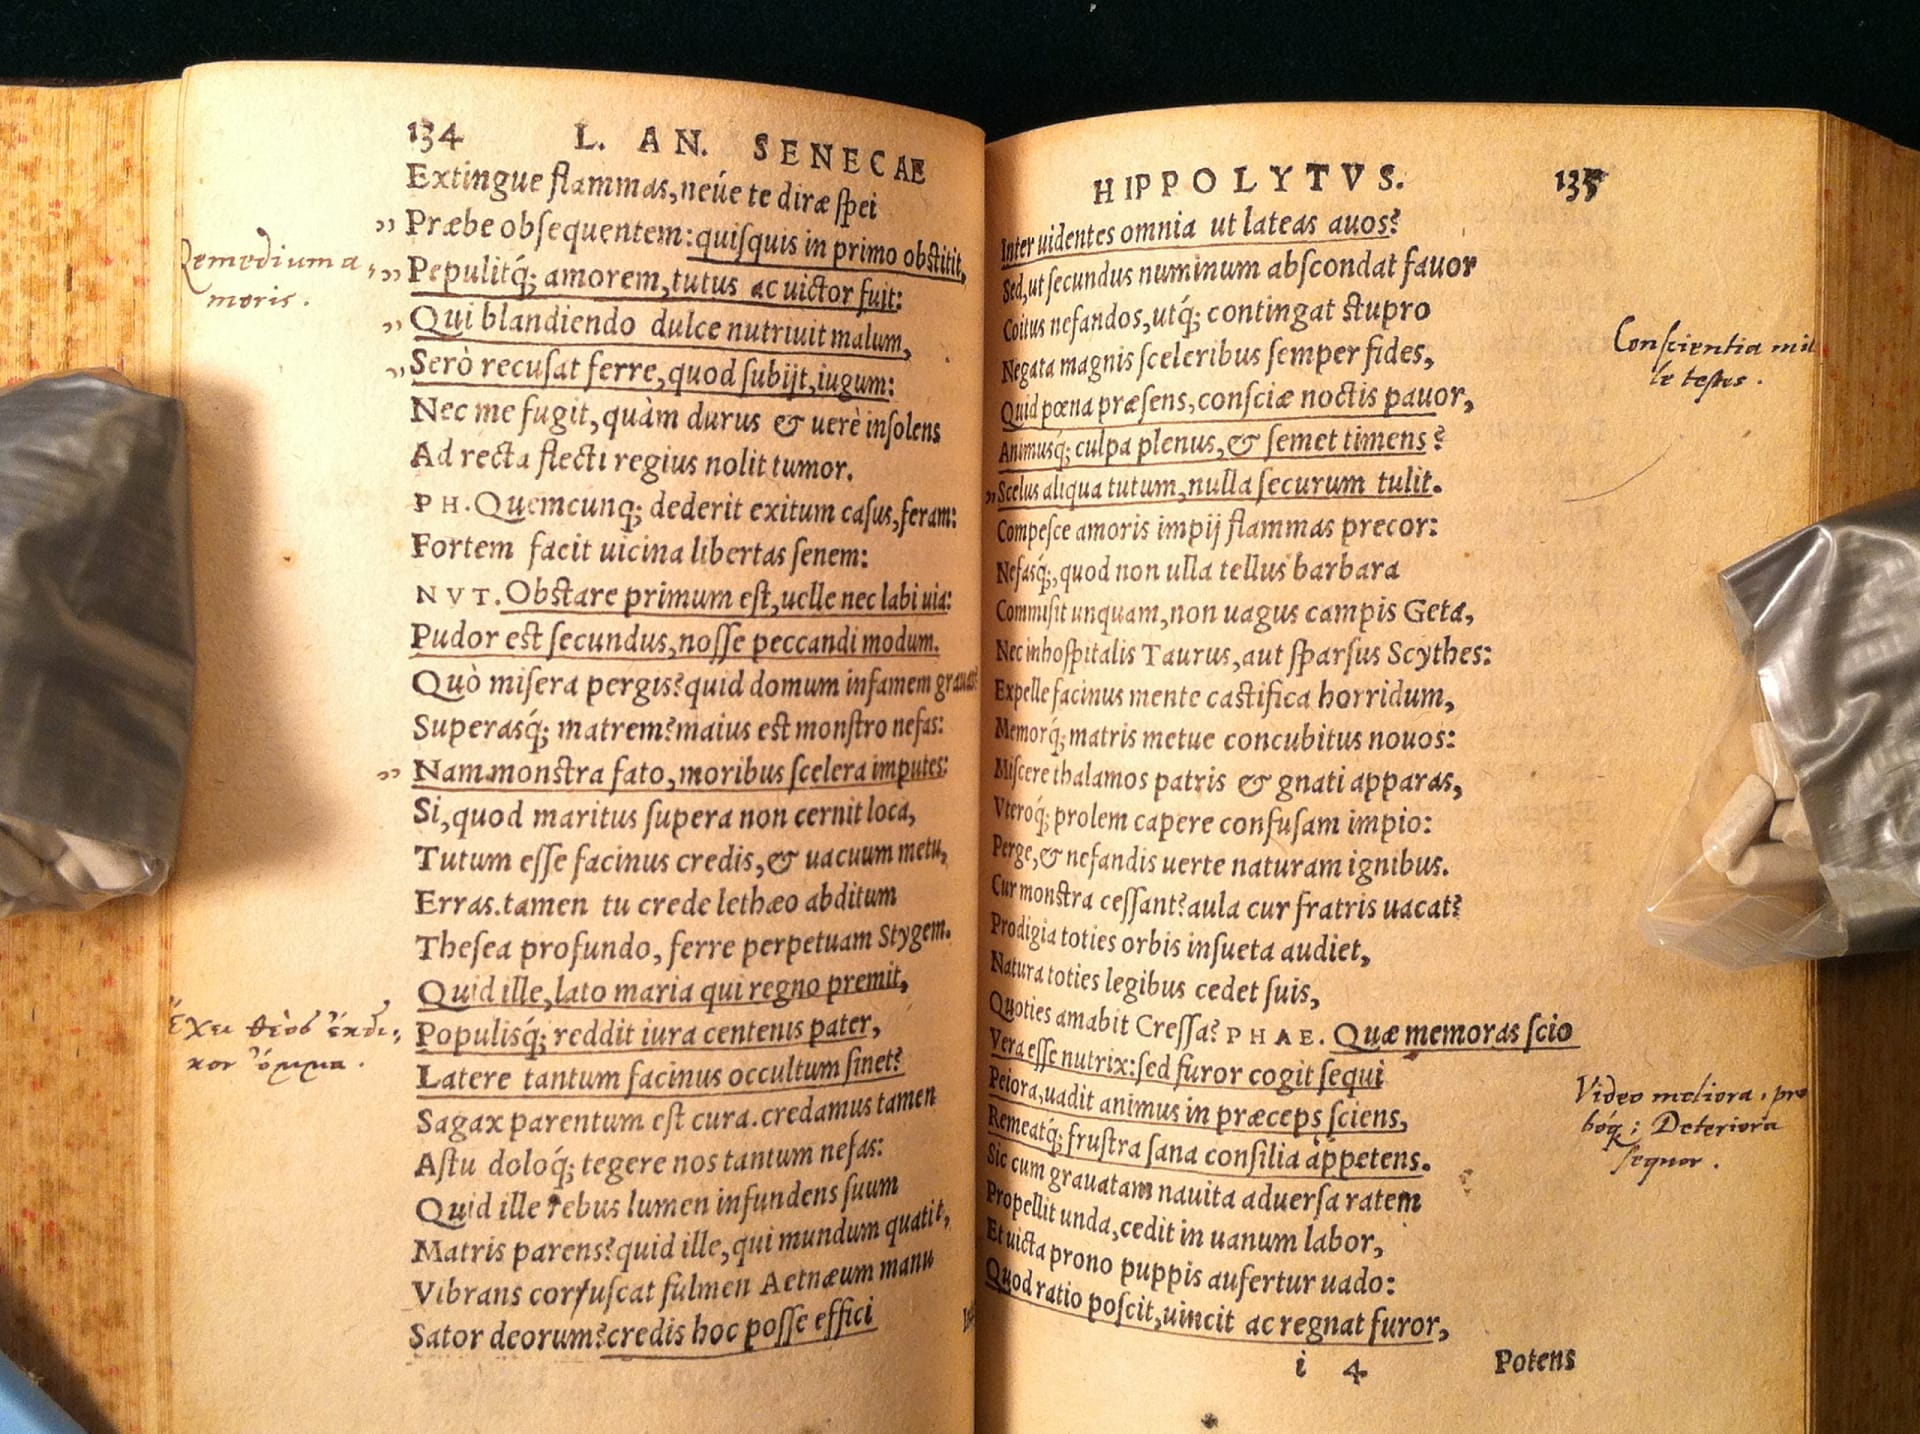 134 L. AN. SENECAE
Extingue flammas, neúe te diræ ſpei
„ Præbe obſequentem: quiſquis in primo obſtitit,
Remedium a,
„ Pepulitq́; amorem, tutus ac uictor fuit:
moris.
„ Qui blandiendo dulce nutriuit malum,
„ Serò recuſat ferre, quod ſubijt, iugum:
Nec me fugit, quàm durus & uerè inſolens
Ad recta flecti regius nolit tumor.
PH. Quemcunq; dederit exitum caſus, feram:
Fortem facit uicina libertas ſenem:
NVT. Obſtare primum eſt, uelle nec labi uia:
Pudor est ſecundus, noſſe peccandi modum.
Quò miſera pergis? quid domum infamem grauas?
Superasq́; matrem? maius est monſtro nefas:
„ Nam monſtra fato, moribus ſcelera imputes:
Si, quod maritus ſupera non cernit loca,
Tutum eſſe facinus credis, & uacuum metu,
Erras. tamen tu crede lethæo abditum
Theſea profundo, ferre perpetuam Stygem.
Quid ille, lato maria qui regno premit,
ἔχει θεὸς ἔκδι,
Populisq́; reddit iura centenis pater,
κον ὄμμα.
Latere tantum facinus occultum ſinet?
Sagax parentum eſt cura. credamus tamen
Aſtu doloq́; tegere nos tantum nefas:
Quid ille rebus lumen infundens ſuum
Matris parens? quid ille, qui mundum quatit,
Vibrans corruſcat fulmen Aetnæum manu
Sator deorum? credis hoc poſſe effici
HIPPOLYTVS. 135
Inter uidentes omnia ut lateas auos?
Sed, ut ſecundus numinum abſcondat fauor
Coitus nefandos, utq́; contingat stupro
Conſcientia mil
Negata magnis ſceleribus ſemper fides,
le testes.
Quid pœna præſens, conſciæ noctis pauor,
Animusq́; culpa plenus, & ſemet timens?
„ Scelus aliqua tutum, nulla ſecurum tulit.
Compeſce amoris impij flammas precor:
Nefasq́;, quod non ulla tellus barbara
Commiſit unquam, non uagus campis Geta,
Nec inhoſpitalis Taurus, aut ſparſus Scythes:
Expelle facinus mente castifica horridum,
Memorq́; matris metue concubitus nouos:
Miſcere thalamos patris & gnati apparas,
Vteroq́; prolem capere confuſam impio:
Perge, & nefandis uerte naturam ignibus.
Cur monstra ceſſant? aula cur fratris uacat?
Prodigia toties orbis inſueta audiet,
Natura toties legibus cedet ſuis,
Quoties amabit Creſſa? PHAE. Quæ memoras ſcio
Vera eſſe nutrix: ſed furor cogit ſequi
Video meliora, pro
Peiora, uadit animus in præceps ſciens,
bóq; : Deteriora
Remeatq́; fruſtra ſana conſilia appetens.
ſequor.
Sic cum grauatam nauita aduerſa ratem
Propellit unda, cedit in uanum labor,
Et uicta prono puppis aufertur uado:
Quod ratio poſcit, uincit ac regnat furor,
i 4 Potens